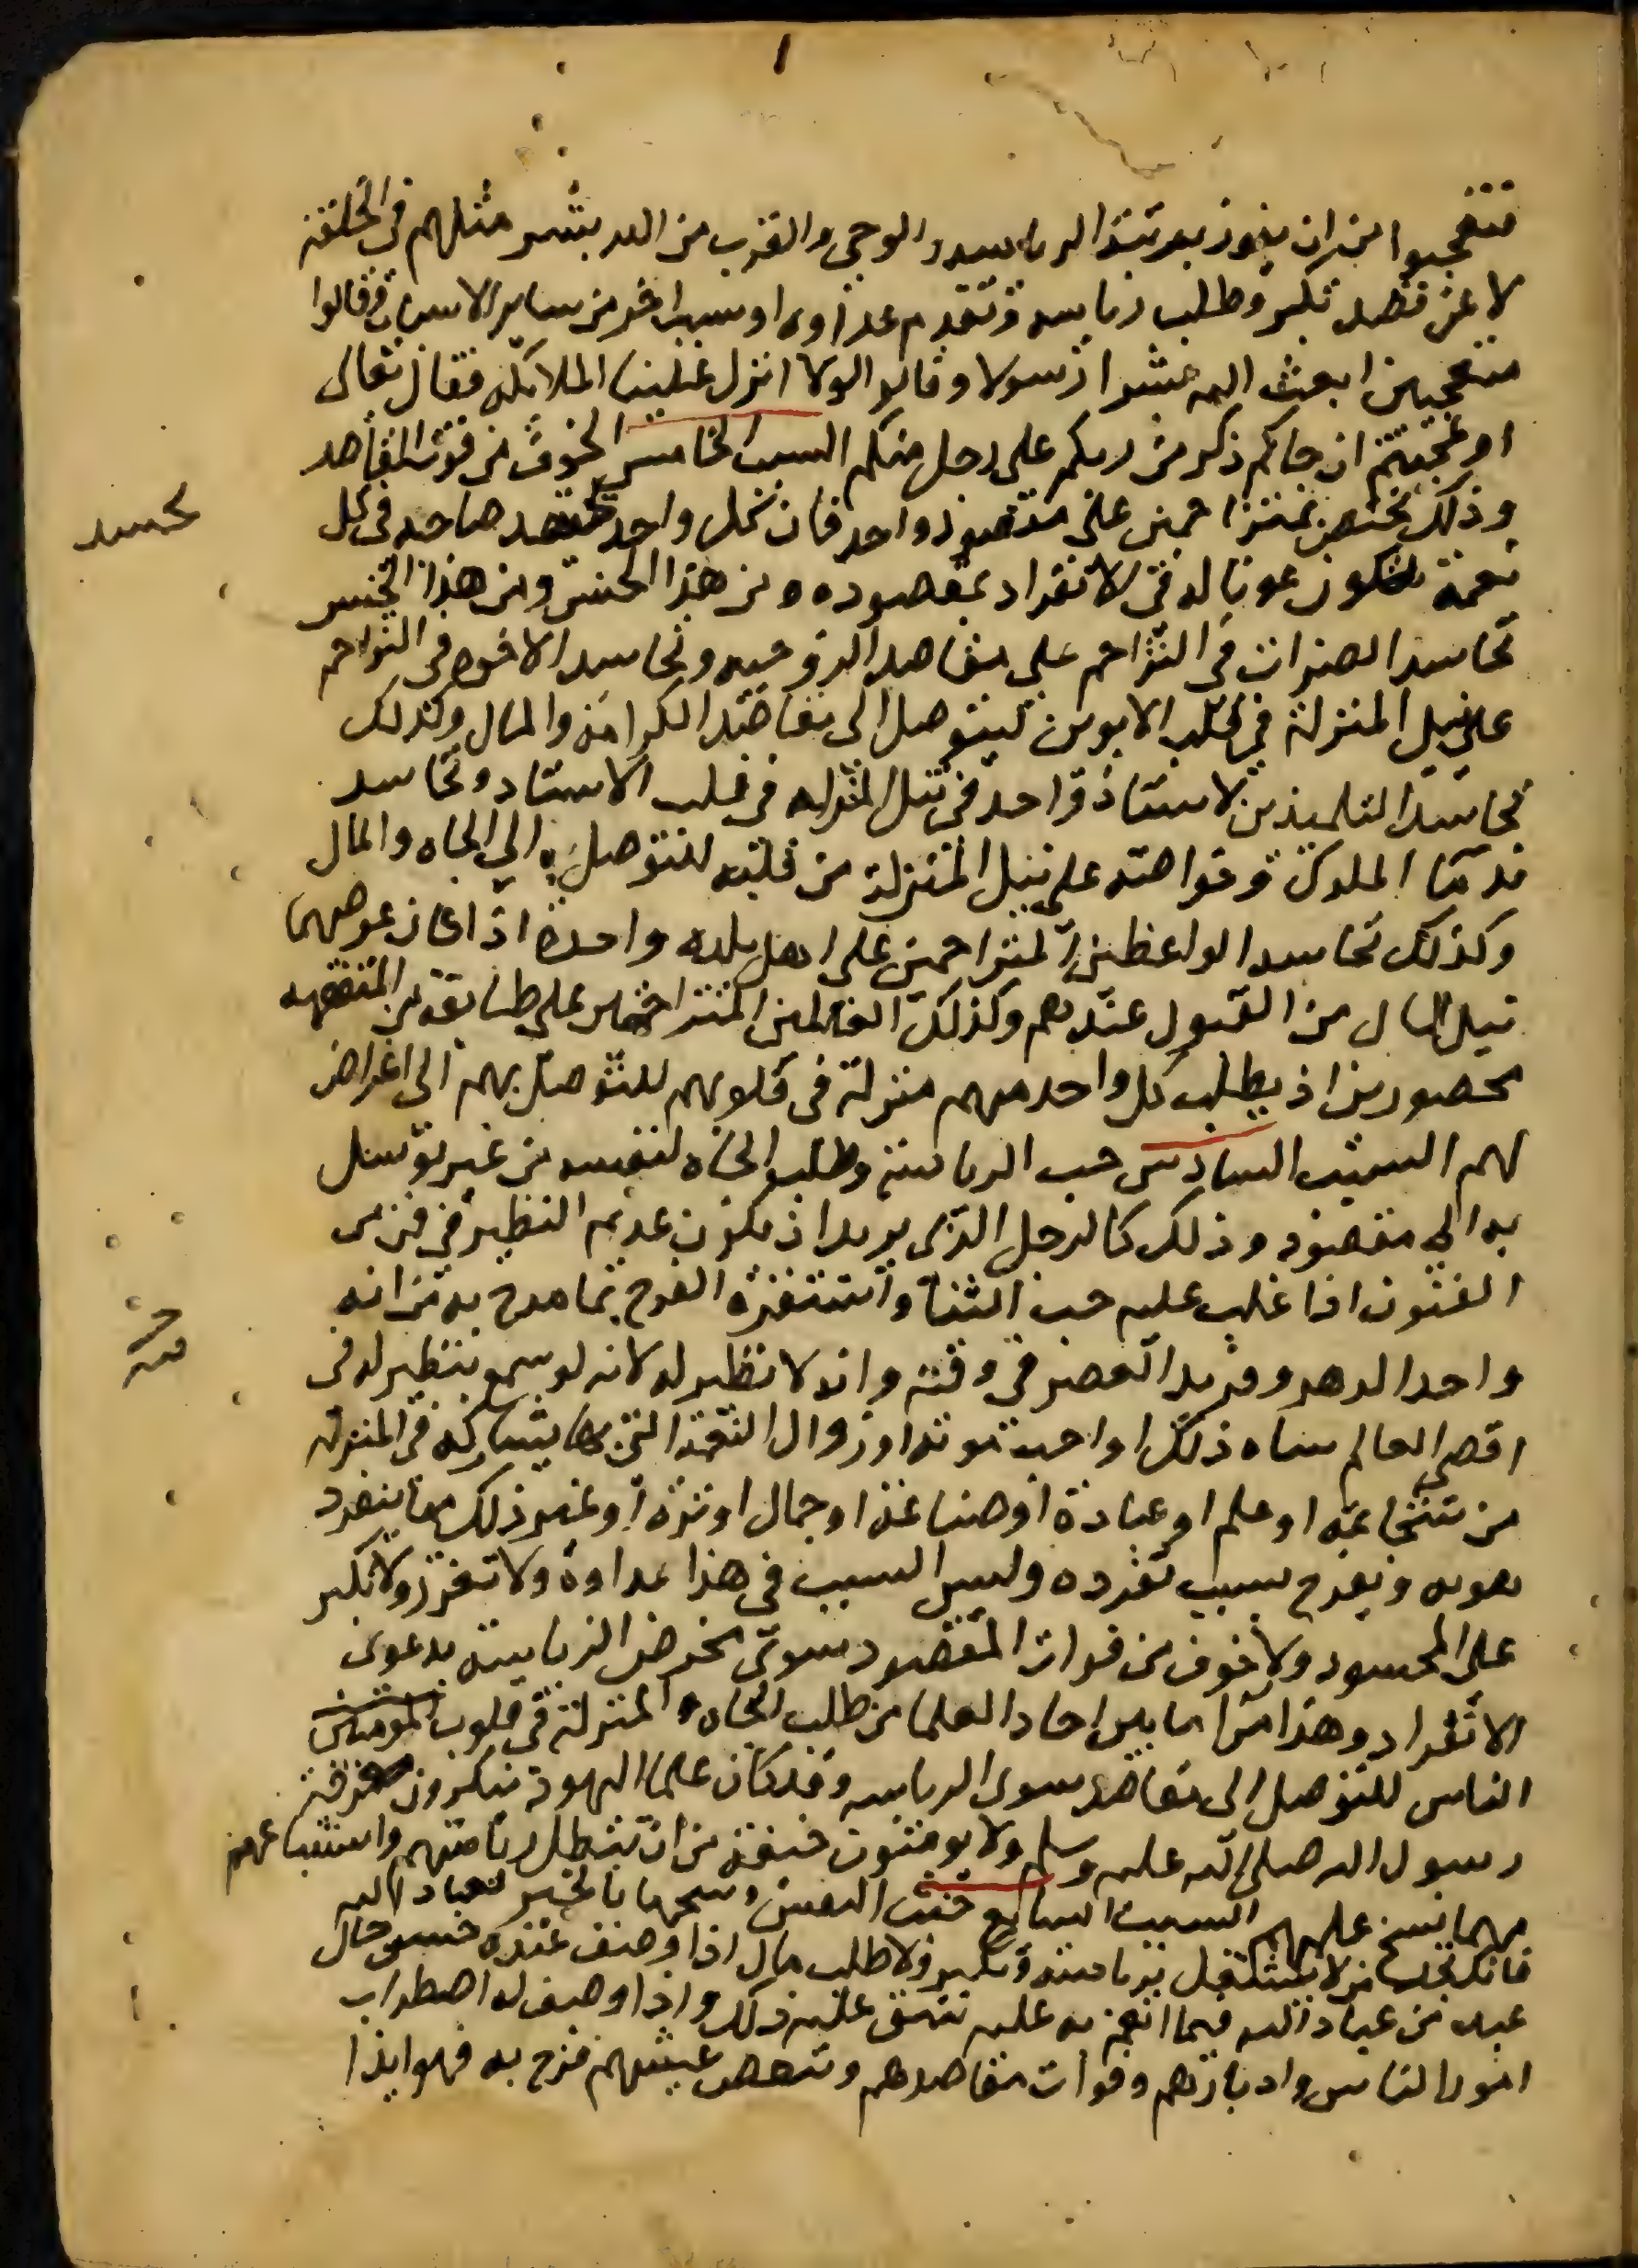 ١
فتعجبوا من ان يفوز بمرتبة الرياسة والوحي والقرب من الله بشر مثلهم في الخلقة
لا عن قصد تكبر وطلب رياسة وتقدم عداوه او سبب اخر من ساير الاسباب وقالوا
متعجبين ابعث الله بشرا رسولا وقالوا لولا انزل علينا الملائكة فقال تعالى
اوعجبتم ان جاكم ذكر من ربكم على رجل منكم السبب الخامس الخوف من فوت المقاصد
وذلك يختص بمتزاحمين على مقصود واحد فان كل واحد يحسد صاحبه في كل
يحسد
نعمة تكون عونا له في الانفراد بمقصوده ومن هذا الجنس ومن هذا الجنس
تحاسد الضرات في التزاحم على مقاصد الزوجيه وتحاسد الاخوه في التزاحم
على نيل المنزلة في قلب الابوين ليتوصل الى مقاصد الكرامة والمال وكذلك
تحاسد التلميذين لاستاذ واحد في نيل المنزله في قلب الاستاد وتحاسد
ندما الملوك وخواصه على نيل المنزلة من قلبه للتوصل به الي الجاه والمال
وكذلك تحاسد الواعظين المتزاحمين على اهل بلده واحدة اذا كان غرضهما
نيل المال من القبول عندهم وكذلك العالمين المتزاحمين على طايفة من المتفقهه
محصورين اذ يطلب كل واحد منهم منزلة في قلوبهم للتوصل بهم الى اغراض
لهم السبب السادس حب الرياسة وطلب الجاه لنفسه من غير توسل
به الي مقصود وذلك كالرجل الذي يريد ان يكون عديم النظير في فن من
الفنون اذا غلب عليه حب الثنا واستفزه الفرح بما مدح به من انه
واحد الدهر وفريد العصر في وقته وانه لا نظير له لانه لو سمع بنظير له في
اقصى العالم ساه ذلك واحب موته او زوال النعمة التي بها يشاركه في المنزله
من شجاعة او علم او عبادة او صناعة او جمال او ثروة او غير ذلك مما ينفرد
هو به ويفرح بسبب تفرده وليس السبب في هذا عداوة ولا تعزز ولا تكبر
على المحسود ولا خوف من فوات المقصود سوى محض الرياسة بدعوى
الانفراد وهذا امر ما بين احاد العلما من طلب الجاه والمنزلة في قلوب
الناس للتوصل الى مقاصد سوى الرياسه وقد كان علما اليهود ينكرون معرفة
رسول الله صلى الله عليه وسلم ولا يومنون خيفة من ان تبطل رياستهم واستتباعهم
مهما نسخ علمهم السبب السابع خبث النفس وشحها بالخير لعباد الله
فانك تجد من لا يشتغل برياسة وتكبر ولا طلب مال اذا وصف عنده حسن حال
عبد من عباد الله فيما انعم به عليه يشق عليه ذلك واذا وصف له اضطراب
امور الناس وادبارهم وفوات مقاصدهم وتنغص عيشهم فرح به فهو ابدا